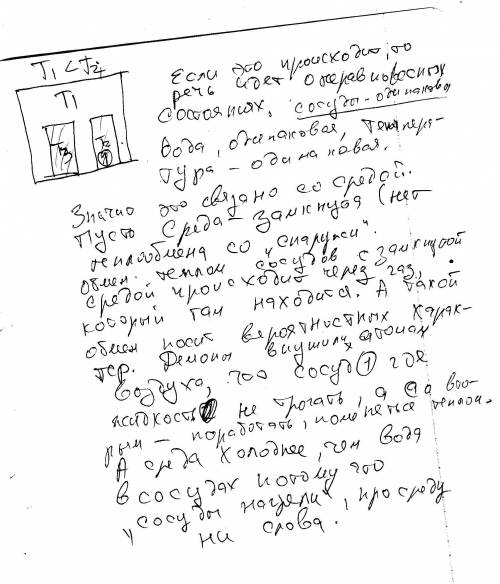 T₁ < T₂
T₁
T₂
T₂
1
Если это происходит, то
речь идет о неравновесных
состояниях, сосуды - одинаковы
Вода, одинаковая, темпера-
тура - одинаковая.
Значит это связано со средой.
Пусть среда - замкнутая (нет
теплообмена со "снаружи".
обмен теплом сосудов с замкнутой
средой происходит через газ,
который там находится. А такой
обмен носит вероятностных харак-
тер. Демоны внушили атомам
воздуха, что сосуд 1 где
жидкость не трогать, а со вто-
рым - поработать, поменяться теплом.
А среда холоднее, чем вода
в сосудах потому что
"сосуды нагрели", про среду
ни слова.